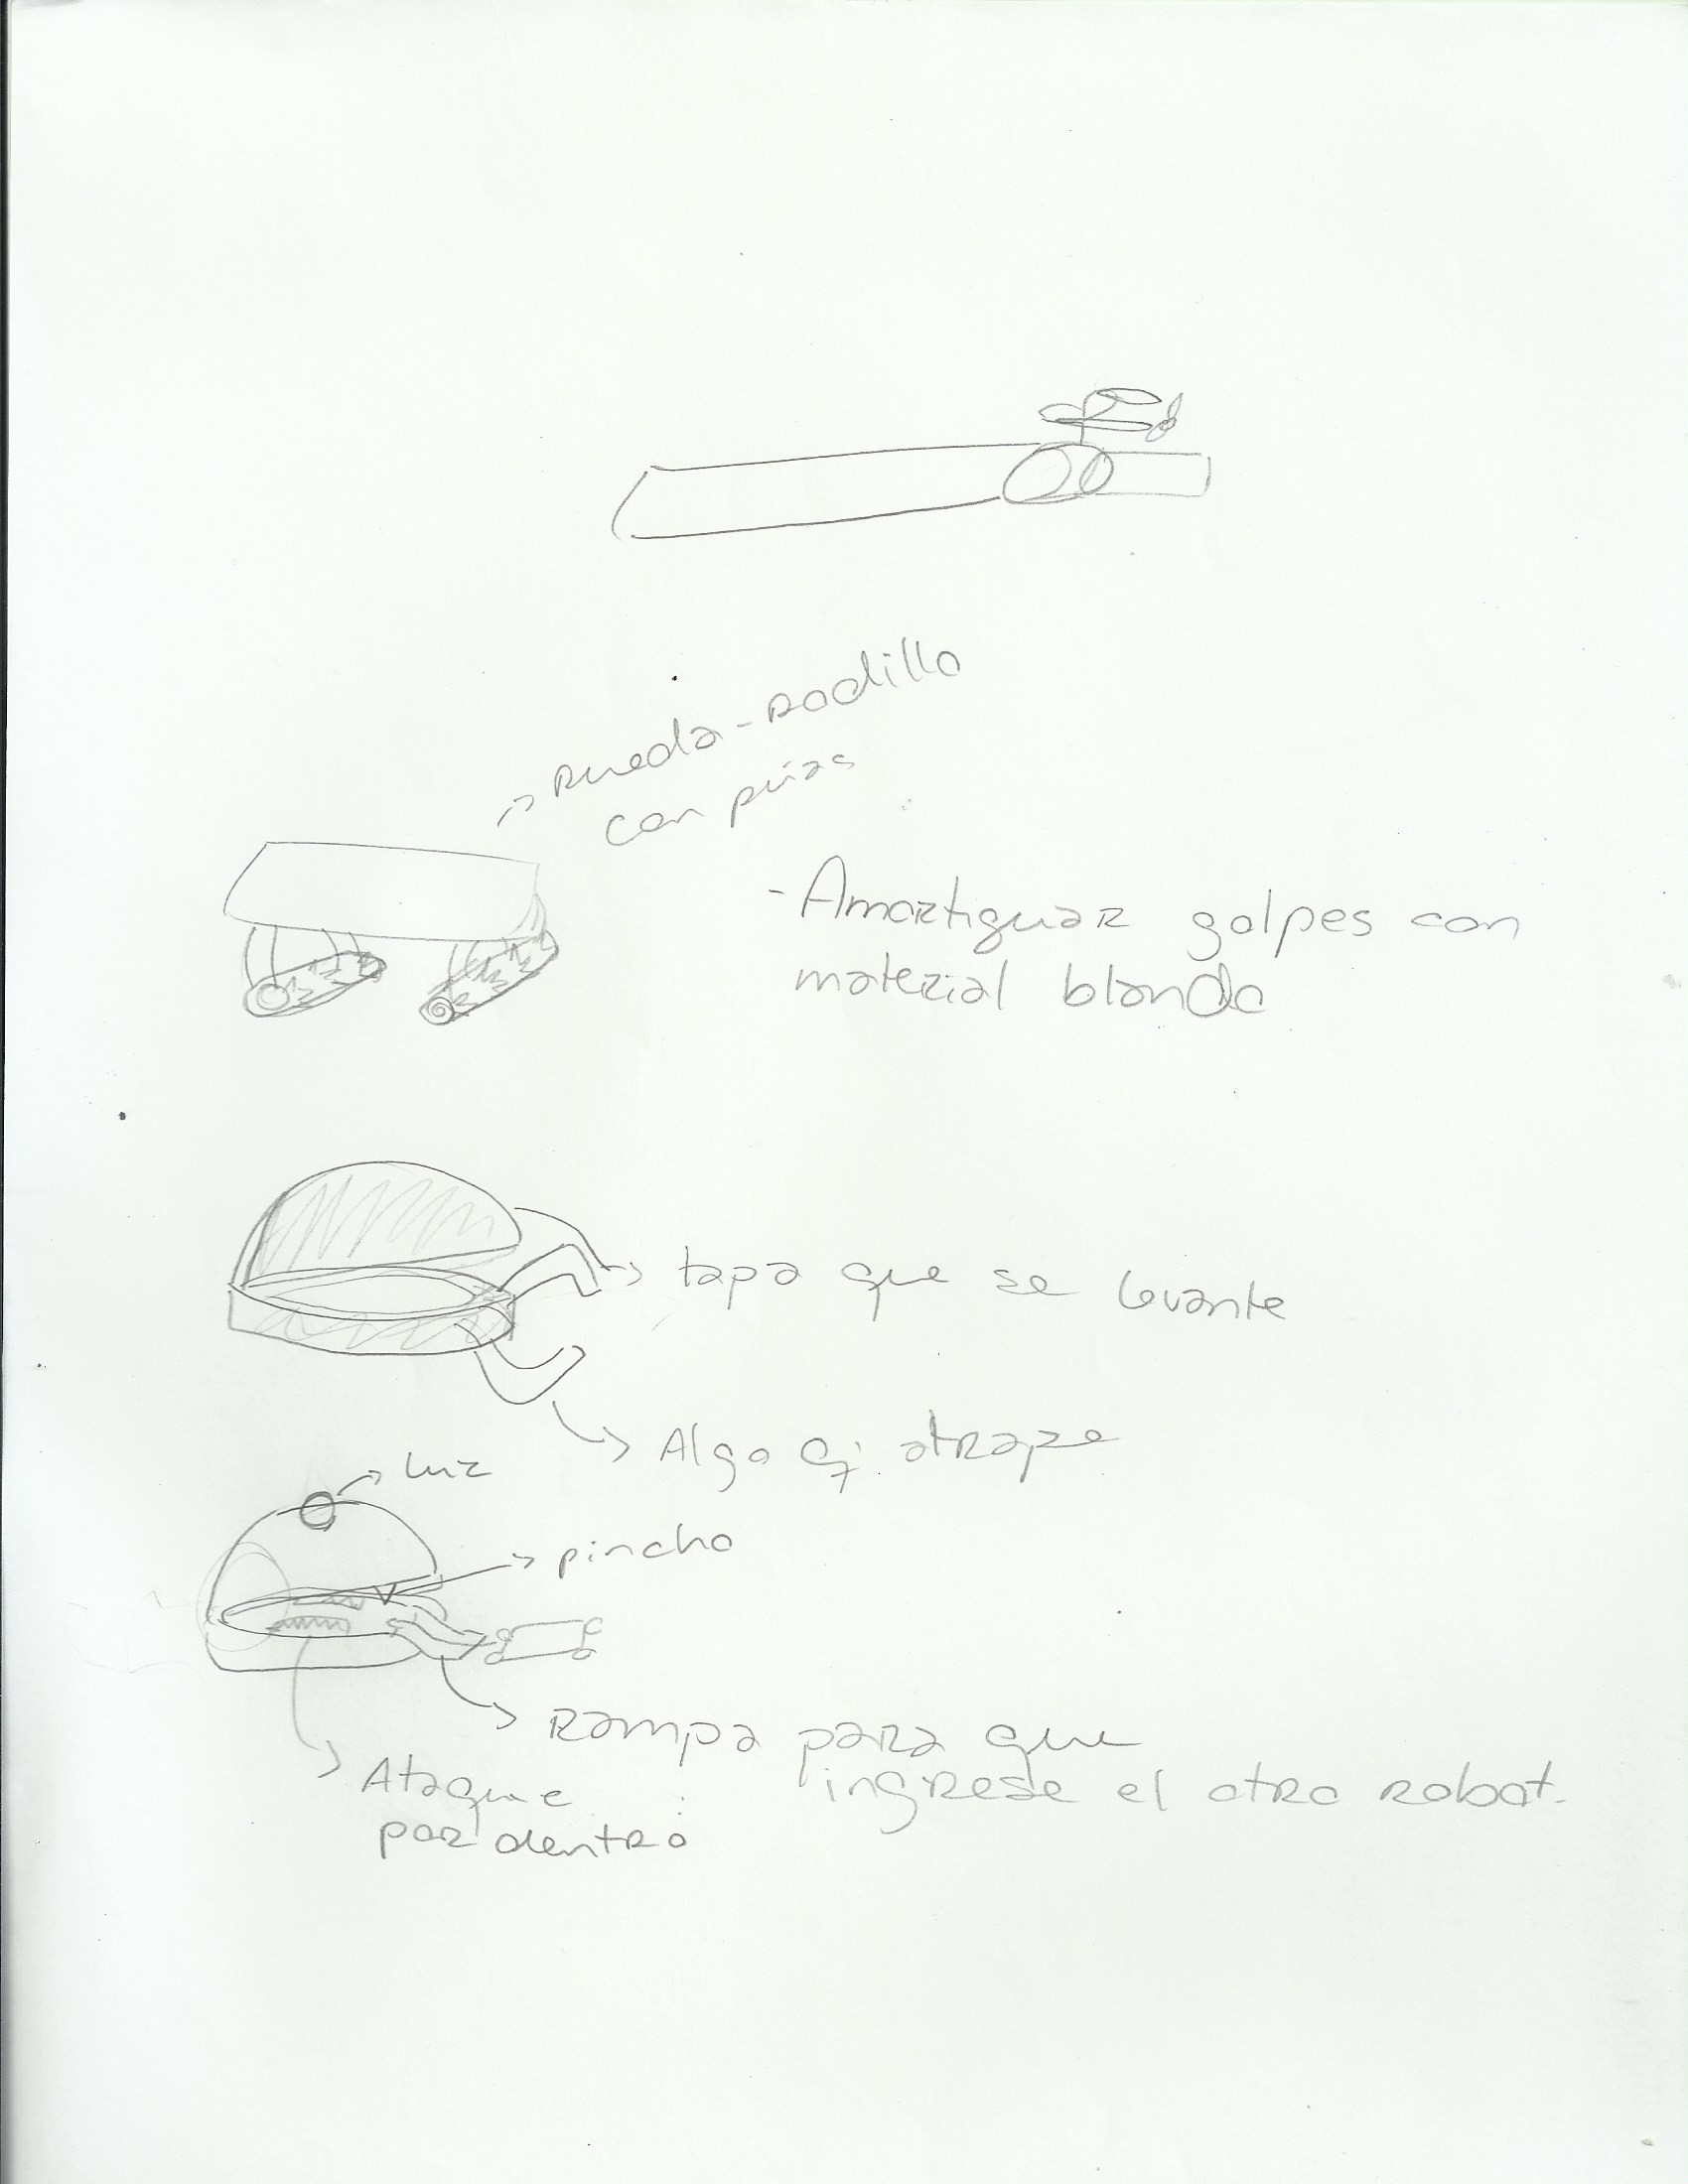 Rueda-Rodillo
con púas
- Amortiguar golpes con
material blando
tapa que se levante
Algo q' atrape
luz
pincho
Rampa para que
ingrese el otro robot.
Ataque
por dentro